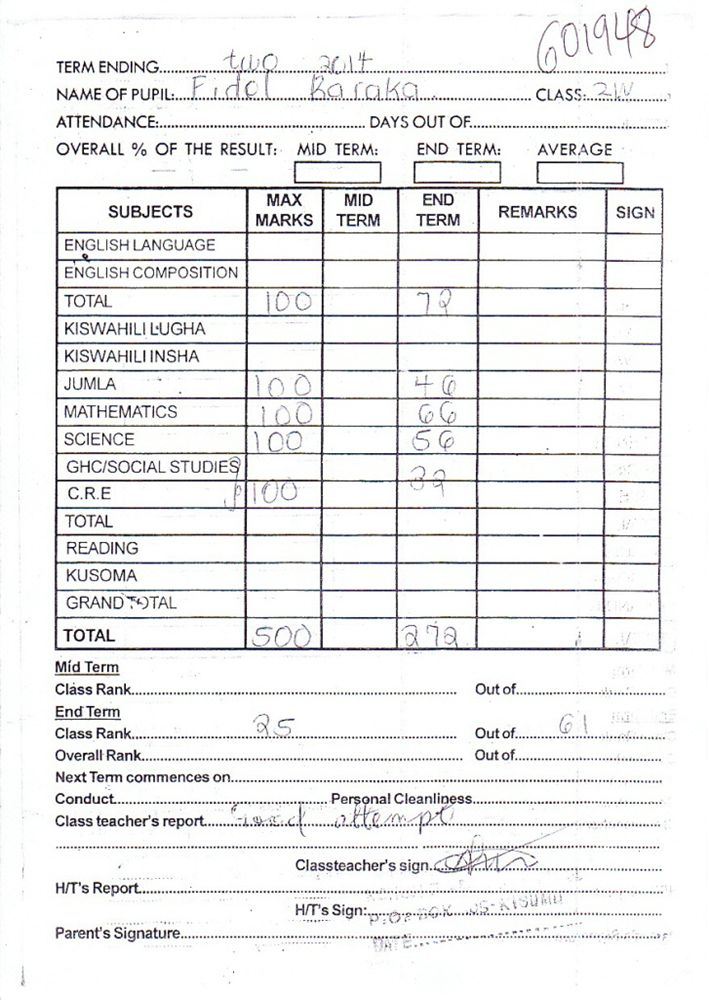 601948
TERM ENDING two 2014
NAME OF PUPIL: Fidel Baraka CLASS: 2W
ATTENDANCE: DAYS OUT OF
OVERALL % OF THE RESULT: MID TERM: END TERM: AVERAGE
SUBJECTS MAX MARKS MID TERM END TERM REMARKS SIGN
ENGLISH LANGUAGE
ENGLISH COMPOSITION
TOTAL 100 72
KISWAHILI LUGHA
KISWAHILI INSHA
JUMLA 100 46
MATHEMATICS 100 66
SCIENCE 100 56
GHC/SOCIAL STUDIES 32
C.R.E 100
TOTAL
READING
KUSOMA
GRAND TOTAL
TOTAL 500 272
Mid Term
Class Rank Out of
End Term
Class Rank 25 Out of 61
Overall Rank Out of
Next Term commences on
Conduct Personal Cleanliness
Class teacher's report Good attempt
Classteacher's sign.
H/T's Report
H/T's Sign: P.O. BOX KISUMU
Parent's Signature DATE